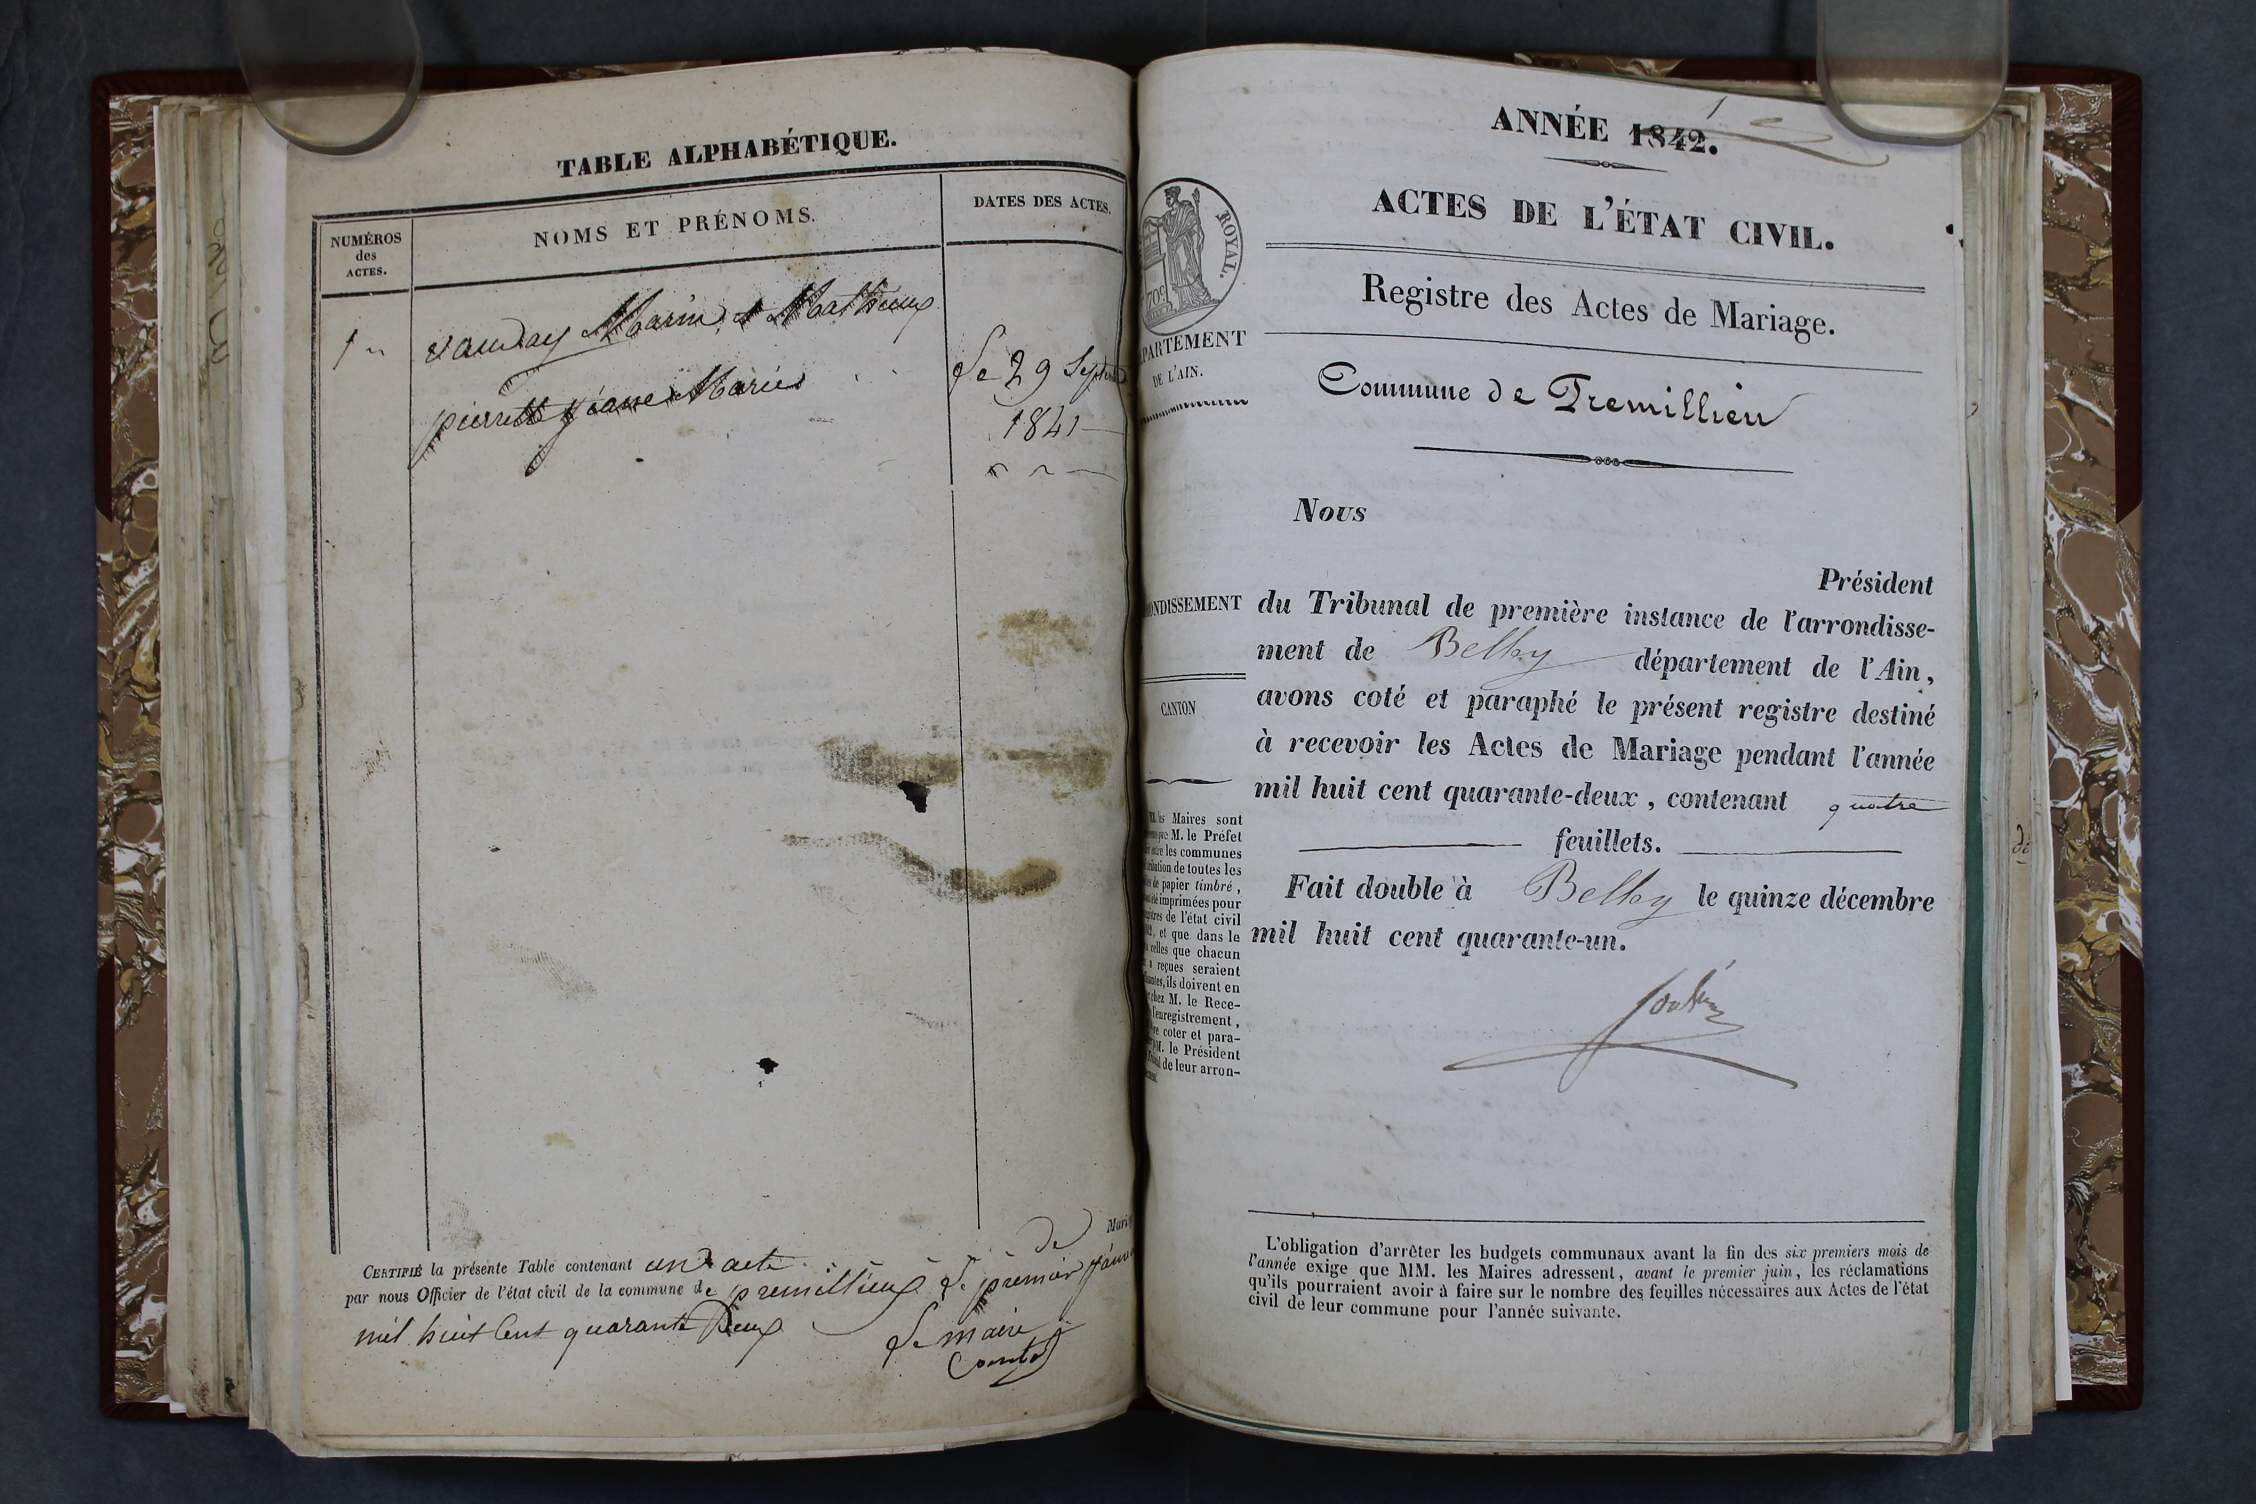 TABLE ALPHABÉTIQUE.
NUMÉROS
des
ACTES.
NOMS ET PRÉNOMS.
DATES DES ACTES.
1
Marin & Mathieux
pierrette jeane Maries
Le 29 Septembre
1841
CERTIFIÉ la présente Table contenant un acte de
par nous Officier de l'état civil de la commune de premillieux Le premier
mil huit Cent quarante Deux
Le maire
ANNÉE 1842.
ACTES DE L'ÉTAT CIVIL.
Registre des Actes de Mariage.
ROYAL.
70c
DE L'AIN.
Commune de Premillieu
Nous
Président
du Tribunal de première instance de l'arrondisse-
ment de Belley département de l'Ain,
avons coté et paraphé le présent registre destiné
à recevoir les Actes de Mariage pendant l'année
mil huit cent quarante-deux, contenant quatre
feuillets.
Fait double à Belley le quinze décembre
mil huit cent quarante-un.
CANTON
Maires sont
M. le Préfet
les communes
de toutes les
de papier timbré,
imprimées pour
de l'état civil
et que dans le
celles que chacun
reçues seraient
ils doivent en
chez M. le Rece-
l'enregistrement,
coter et para-
M. le Président
de leur arron-
L'obligation d'arrêter les budgets communaux avant la fin des six premiers mois de
l'année exige que MM. les Maires adressent, avant le premier juin, les réclamations
qu'ils pourraient avoir à faire sur le nombre des feuilles nécessaires aux Actes de l'état
civil de leur commune pour l'année suivante.